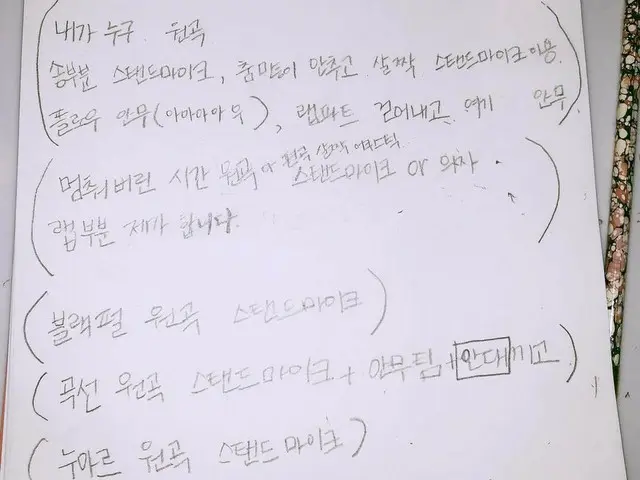 (내가 누구 원곡
송부분 스탠드마이크, 춤많이 안추고 살짝 스탠드마이크 이용.
플로우 안무(아아아아 우), 랩파트 걷어내고 여기 안무)
(멈춰버린 시간 원곡 or 원곡 살짝 어쿠스틱
스탠드마이크 or 의자
랩부분 제가 합니다.)
(블랙펄 원곡 스탠드마이크)
(곡선 원곡 스탠드마이크 + 안무팀 + 안대끼고)
(누아르 원곡 스탠드마이크)